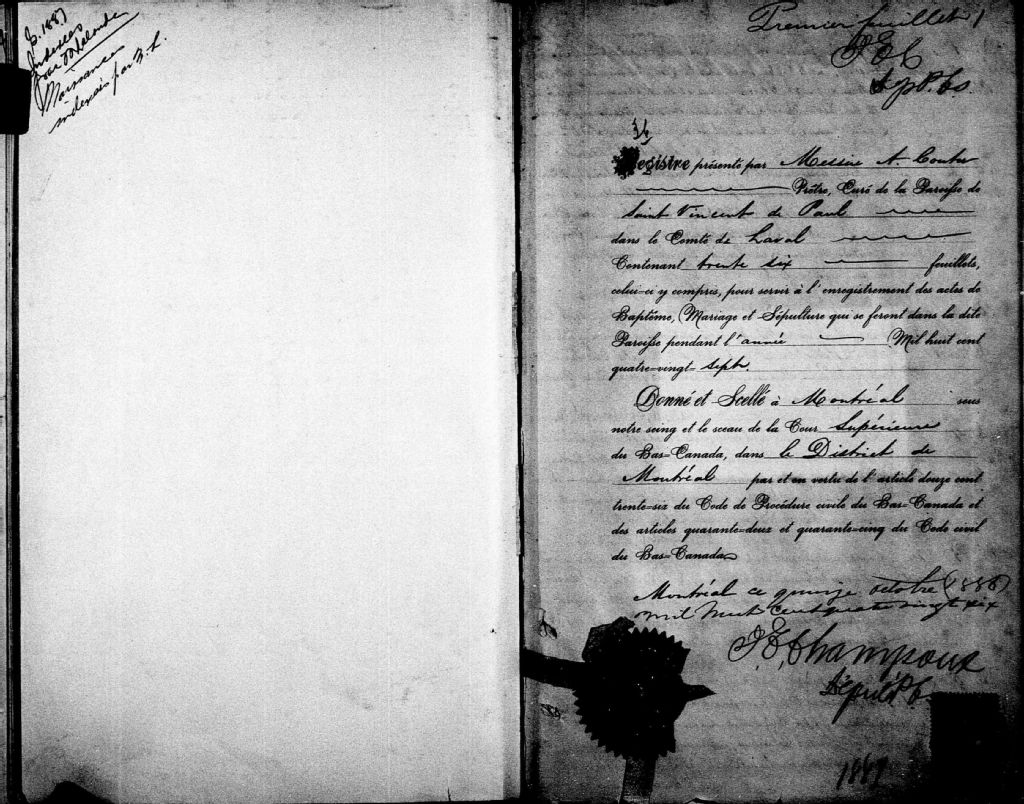 B. 1887
Indexées
par
Naissances
indexées par F. L.
Premier feuillet /
J E C
Dép. P. C. S.
Registre présenté par Messire A.
Prêtre, Curé de la Paroisse de
Saint Vincent de Paul
dans le Comté de Laval
Contenant trente six feuillets,
celui-ci y compris, pour servir à l'enregistrement des actes de
Baptême, Mariage et Sépulture qui se feront dans la dite
Paroisse pendant l'année Mil huit cent
quatre-vingt-sept.
Donné et Scellé à Montréal sous
notre seing et le sceau de la Cour Supérieure
du Bas-Canada, dans le District de
Montréal par et en vertu de l'article douze cent
trente-six du Code de Procédure civile du Bas-Canada et
des articles quarante-deux et quarante-cinq du Code civil
du Bas-Canada
Montréal ce quinze octobre (1886)
mil huit cent quatre vingt six
J. E. Champoux
Député P. C. S.
1887